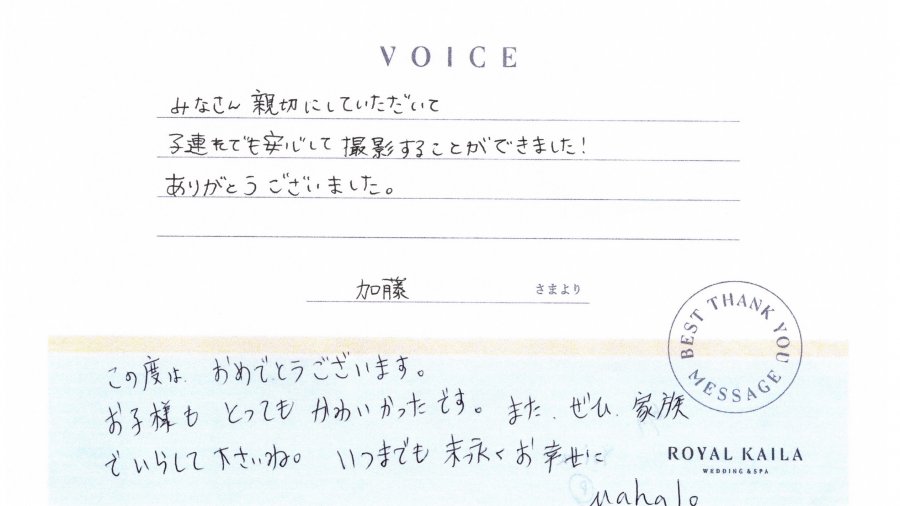 VOICE
みなさん 親切にしていただいて
子連れでも安心して 撮影することができました!
ありがとうございました。
加藤 さまより
BEST THANK YOU MESSAGE
この度は、おめでとうございます。
お子様も とっても かわいかったです。 また、ぜひ、家族
でいらして下さいね。 いつまでも 末永くお幸せに
ROYAL KAILA
WEDDING & SPA
Mahalo